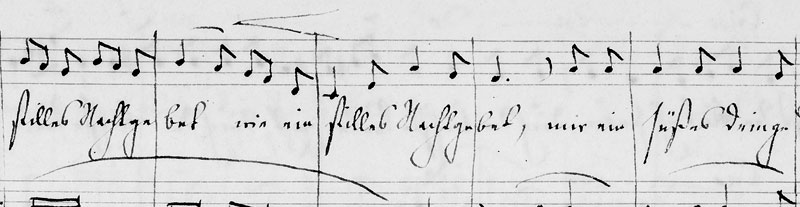 stilles Nachtge bet wie ein stilles Nachtgebet, mir ein süßes Deinge